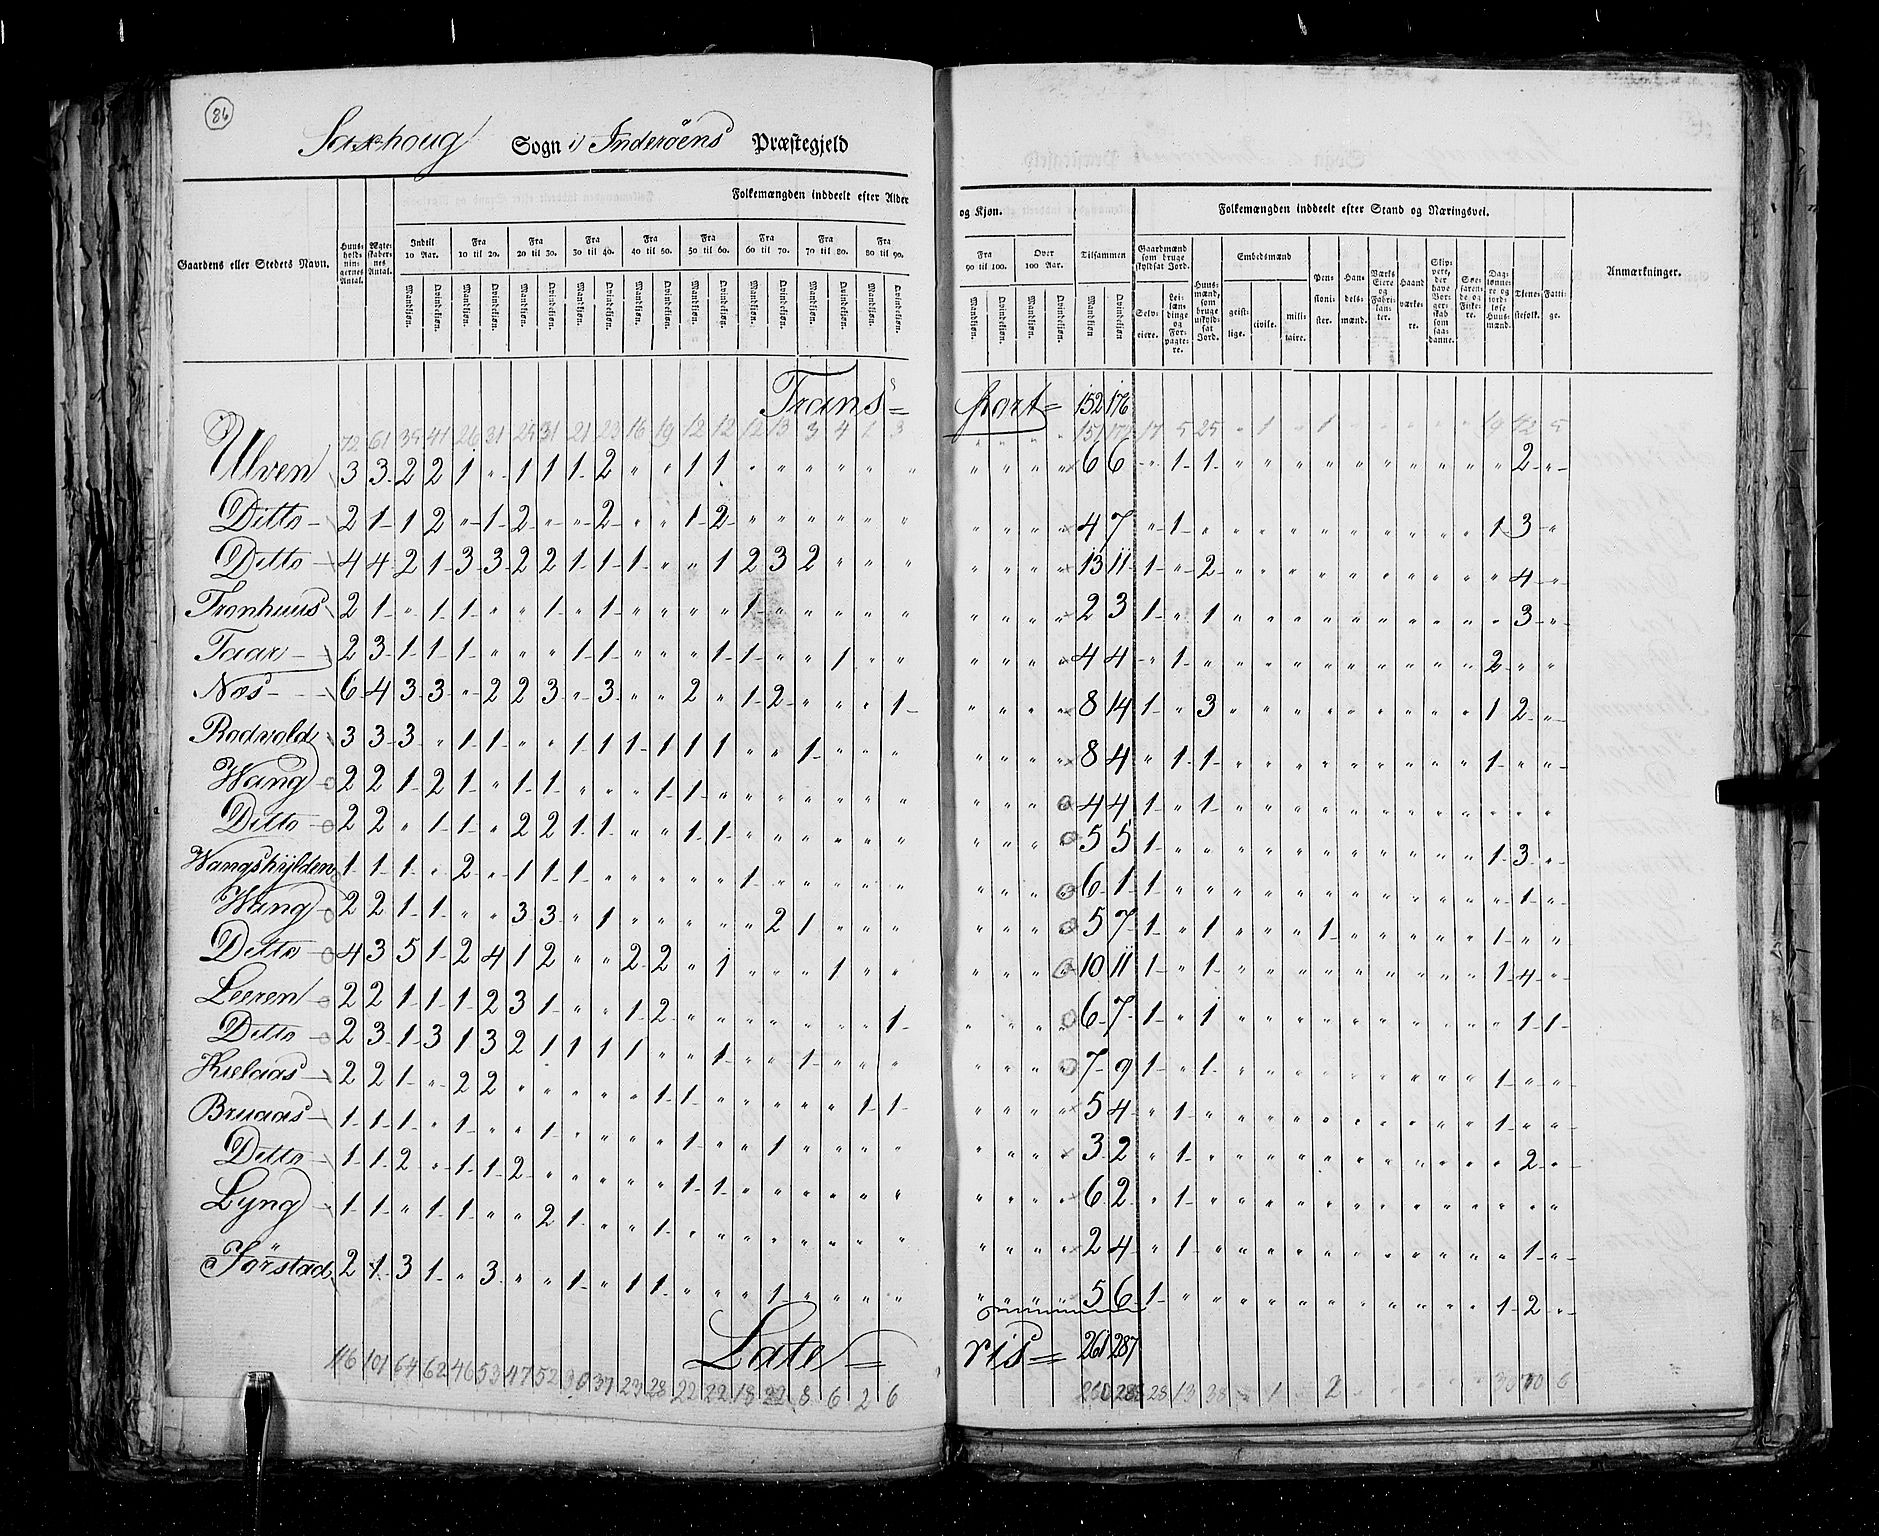 86
Saxhoug Sogn i Inderöens Præstegjeld
Gaardens eller Stedets Navn.
Huusholdningernes Antal.
Ægteskabernes Antal.
Folkemængden inddeelt efter Alder og Kjøn.
Indtil 10 Aar. Fra 10 til 20. Fra 20 til 30. Fra 30 til 40. Fra 40 til 50. Fra 50 til 60. Fra 60 til 70. Fra 70 til 80. Fra 80 til 90. Fra 90 til 100. Over 100 Aar. Tilsammen
Mandkiøn. Qvindekiøn.
Folkemængden inddeelt efter Stand og Næringsvei.
Gaardmænd som bruge skyldsat Jord.
Selveiere. Leilændinge og Forpagtere.
Huusmænd, som bruge uskyldsat Jord.
Embedsmænd
geistlige. civile. militaire.
Pensionister.
Handelsmænd.
Værks Eiere og Fabrikanter.
Haandværkere.
Skippere, der have Borgerskab som saadanne.
Søefarende og Fiskere.
Daglønnere og jordløse Huusmænd.
Tjenestefolk.
Fattige.
Anmærkninger.
Transport= 152 176
72 61 35 41 26 31 25 31 21 23 16 19 12 12 12 13 3 4 1 3 151 174 17 5 25 " 1 " 1 19 42 5
Ulven 3 3 2 2 1 " 1 1 1 2 " " 1 1 " " " " " " " " " " 6 6 " 1 1 " " " " " " " " " " " 2 "
Ditto 2 1 1 2 " 1 2 " " 2 " " 1 2 " " " " " " " " " " 4 7 " 1 " " " " " " " " " " " 1 3 "
Ditto 4 4 2 1 3 3 2 2 1 1 1 " " 1 2 3 2 " " " " " " " 13 11 1 " 2 " " " " " " " " " " " 4 "
Tronhuus 2 1 " 1 1 " " 1 " 1 " " " " 1 " " " " " " " " " 2 3 1 " 1 " " " " " " " " " " " 3 "
Taar 2 3 1 1 1 " " " 1 1 " " " 1 1 " " 1 " " " " " " 4 4 " 1 " " " " " " " " " " " 2 " "
Næs 6 4 3 3 " 2 2 3 " 3 " " 2 " 1 2 " " " 1 " " " " 8 14 1 " 3 " " " " " " " " " " 1 2 "
Rodvold 3 3 3 " 1 1 " " 1 1 1 1 1 1 " " 1 " " " " " " " 8 4 " 1 1 " " " " " " " " " " 1 " "
Wang 2 2 1 2 1 " 1 1 " " " 1 1 " " " " " " " " " " " 4 4 1 " 1 " " " " " " " " " " " " "
Ditto 2 2 " 1 1 " 2 2 1 1 " " 1 1 " " " " " " " " " " 5 5 1 " " " " " " " " " " " " 1 3 "
Wangshylden 1 1 1 " 2 " 1 1 1 " " " " " 1 " " " " " " " " " 6 1 1 " " " " " " " " " " " " " 1 "
Wang 2 2 1 1 " " 3 3 " 1 " " " " " 2 1 " " " " " " " 5 7 1 " 1 " " " 1 " " " " " " 1 " "
Ditto 4 3 5 1 2 4 1 2 " " 2 2 " 1 " " " 1 " " " " " " 10 11 1 " 1 " " " " " " " " " " 1 4 "
Leeren 2 2 1 1 1 2 3 1 " " 1 2 " " " " " " " 1 " " " " 6 7 1 " 1 " " " " " " " " " " " 1 1
Ditto 2 3 1 3 1 3 2 1 1 1 1 " " 1 " " 1 " " " " " " " 7 9 1 " 1 " " " " " " " " " " 1 " "
Kielaas 2 2 1 " 2 2 " " " " " 1 1 " " " " " 1 1 " " " " 5 4 " 1 " " " " " " " " " " " 1 " "
Bruaas 1 1 1 " 1 " " 1 " " " " 1 " " 1 " " " " " " " " 3 2 " 1 " " " " " " " " " " " " 2 "
Ditto 1 1 2 " 1 1 2 " " " " " 1 1 " " " " " " " " " " 6 2 " 1 " " " " " " " " " " " " " "
Lyng 1 1 " 1 1 " " 2 1 " " 1 " " " " " " " " " " " " 2 4 " 1 " " " " " " " " " " " " 1 "
Förstad 2 1 3 1 " 3 " " 1 " 1 1 " " " 1 " " " " " " " " 5 6 1 " " " " " " " " " " " " 1 2 "
Lateris= 261 287
116 101 64 62 46 53 47 52 30 37 23 28 22 22 18 22 8 6 2 6 260 285 28 13 38 1 2 30 70 6